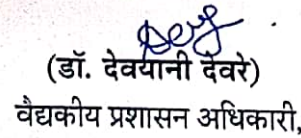 (डॉ. देवयानी देवरे)
वैद्यकीय प्रशासन अधिकारी,